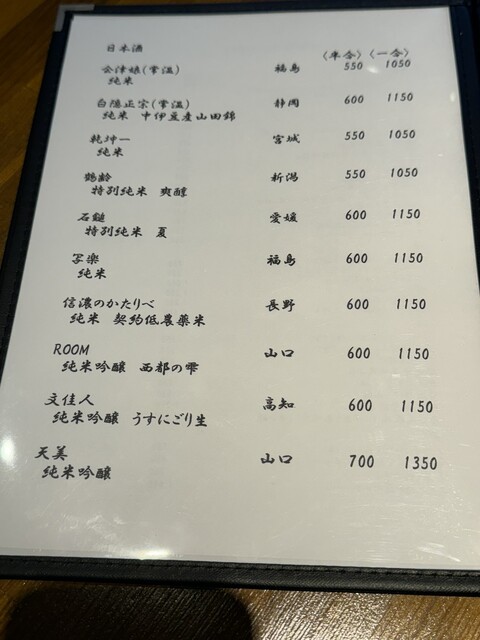 日本酒 (半合) (一合)
会津娘(常温) 福島 550 1050
純米
白隠正宗(常温) 静岡 600 1150
純米 中伊豆産山田錦
乾坤一 宮城 550 1050
純米
鶴齢 新潟 550 1050
特別純米 爽醇
石鎚 愛媛 600 1150
特別純米 夏
写楽 福島 600 1150
純米
信濃のかたりべ 長野 600 1150
純米 契約低農薬米
ROOM 山口 600 1150
純米吟醸 西都の雫
文佳人 高知 600 1150
純米吟醸 うすにごり生
天美 山口 700 1350
純米吟醸